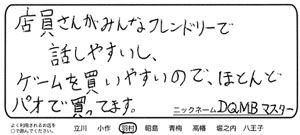 店員さんがみんなフレンドリーで
話しやすいし、
ゲームを買いやすいので、ほとんど
パオで買ってます。
ニックネーム DQMB マスター
よく利用されるお店を
○で囲んでください。
立川 小作 羽村 昭島 青梅 高幡 堀之内 八王子